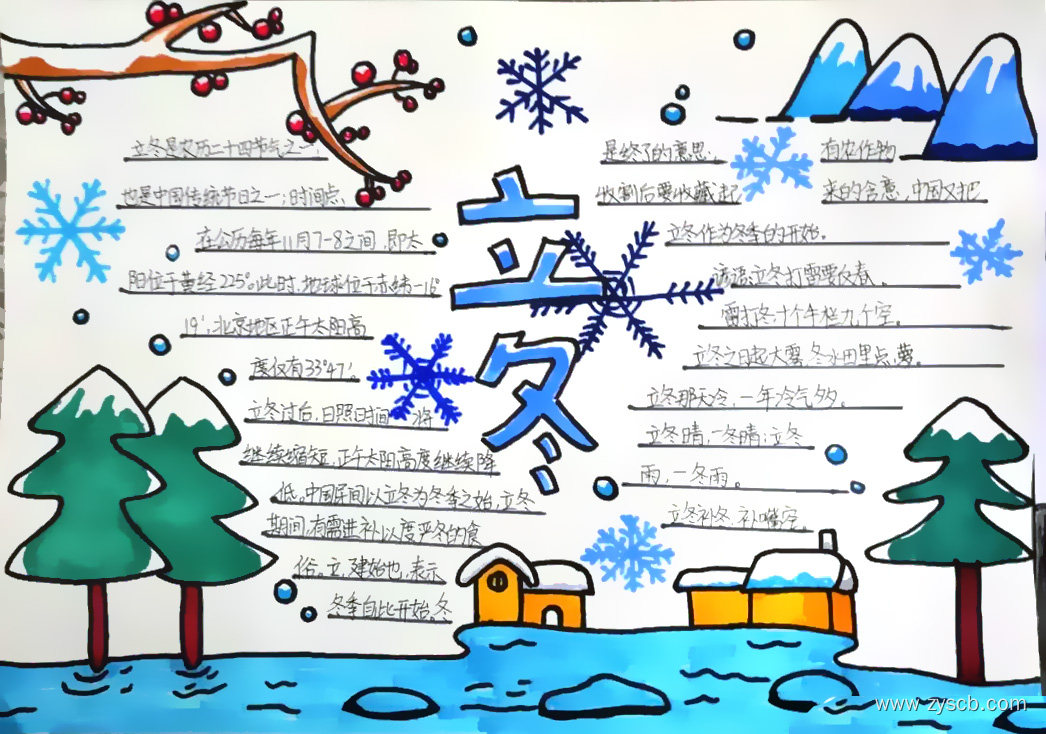 立冬
立冬是农历二十四节气之一,
也是中国传统节日之一;时间点、
在公历每年11月7-8之间,即太
阳位于黄经225°。此时,地球位于赤纬-16°
19′,北京地区正午太阳高
度仅有33°47′.
立冬过后,日照时间 将
继续缩短,正午太阳高度继续降
低。中国民间以立冬为冬季之始,立冬
期间,有需进补以度严冬的食
俗。立,建始也,表示
冬季自此开始。冬
是终了的意思. 有农作物
收割后要收藏起 来的含意,中国又把
立冬作为冬季的开始.
谚语:立冬打雷要反春。
雷打冬,十个牛栏九个空。
立冬之日起大雾,冬水田里点 萝。
立冬那天冷,一年冷气多。
立冬晴,一冬晴;立冬
雨,一冬雨。
立冬补冬,补嘴空。
www.zyscb.com